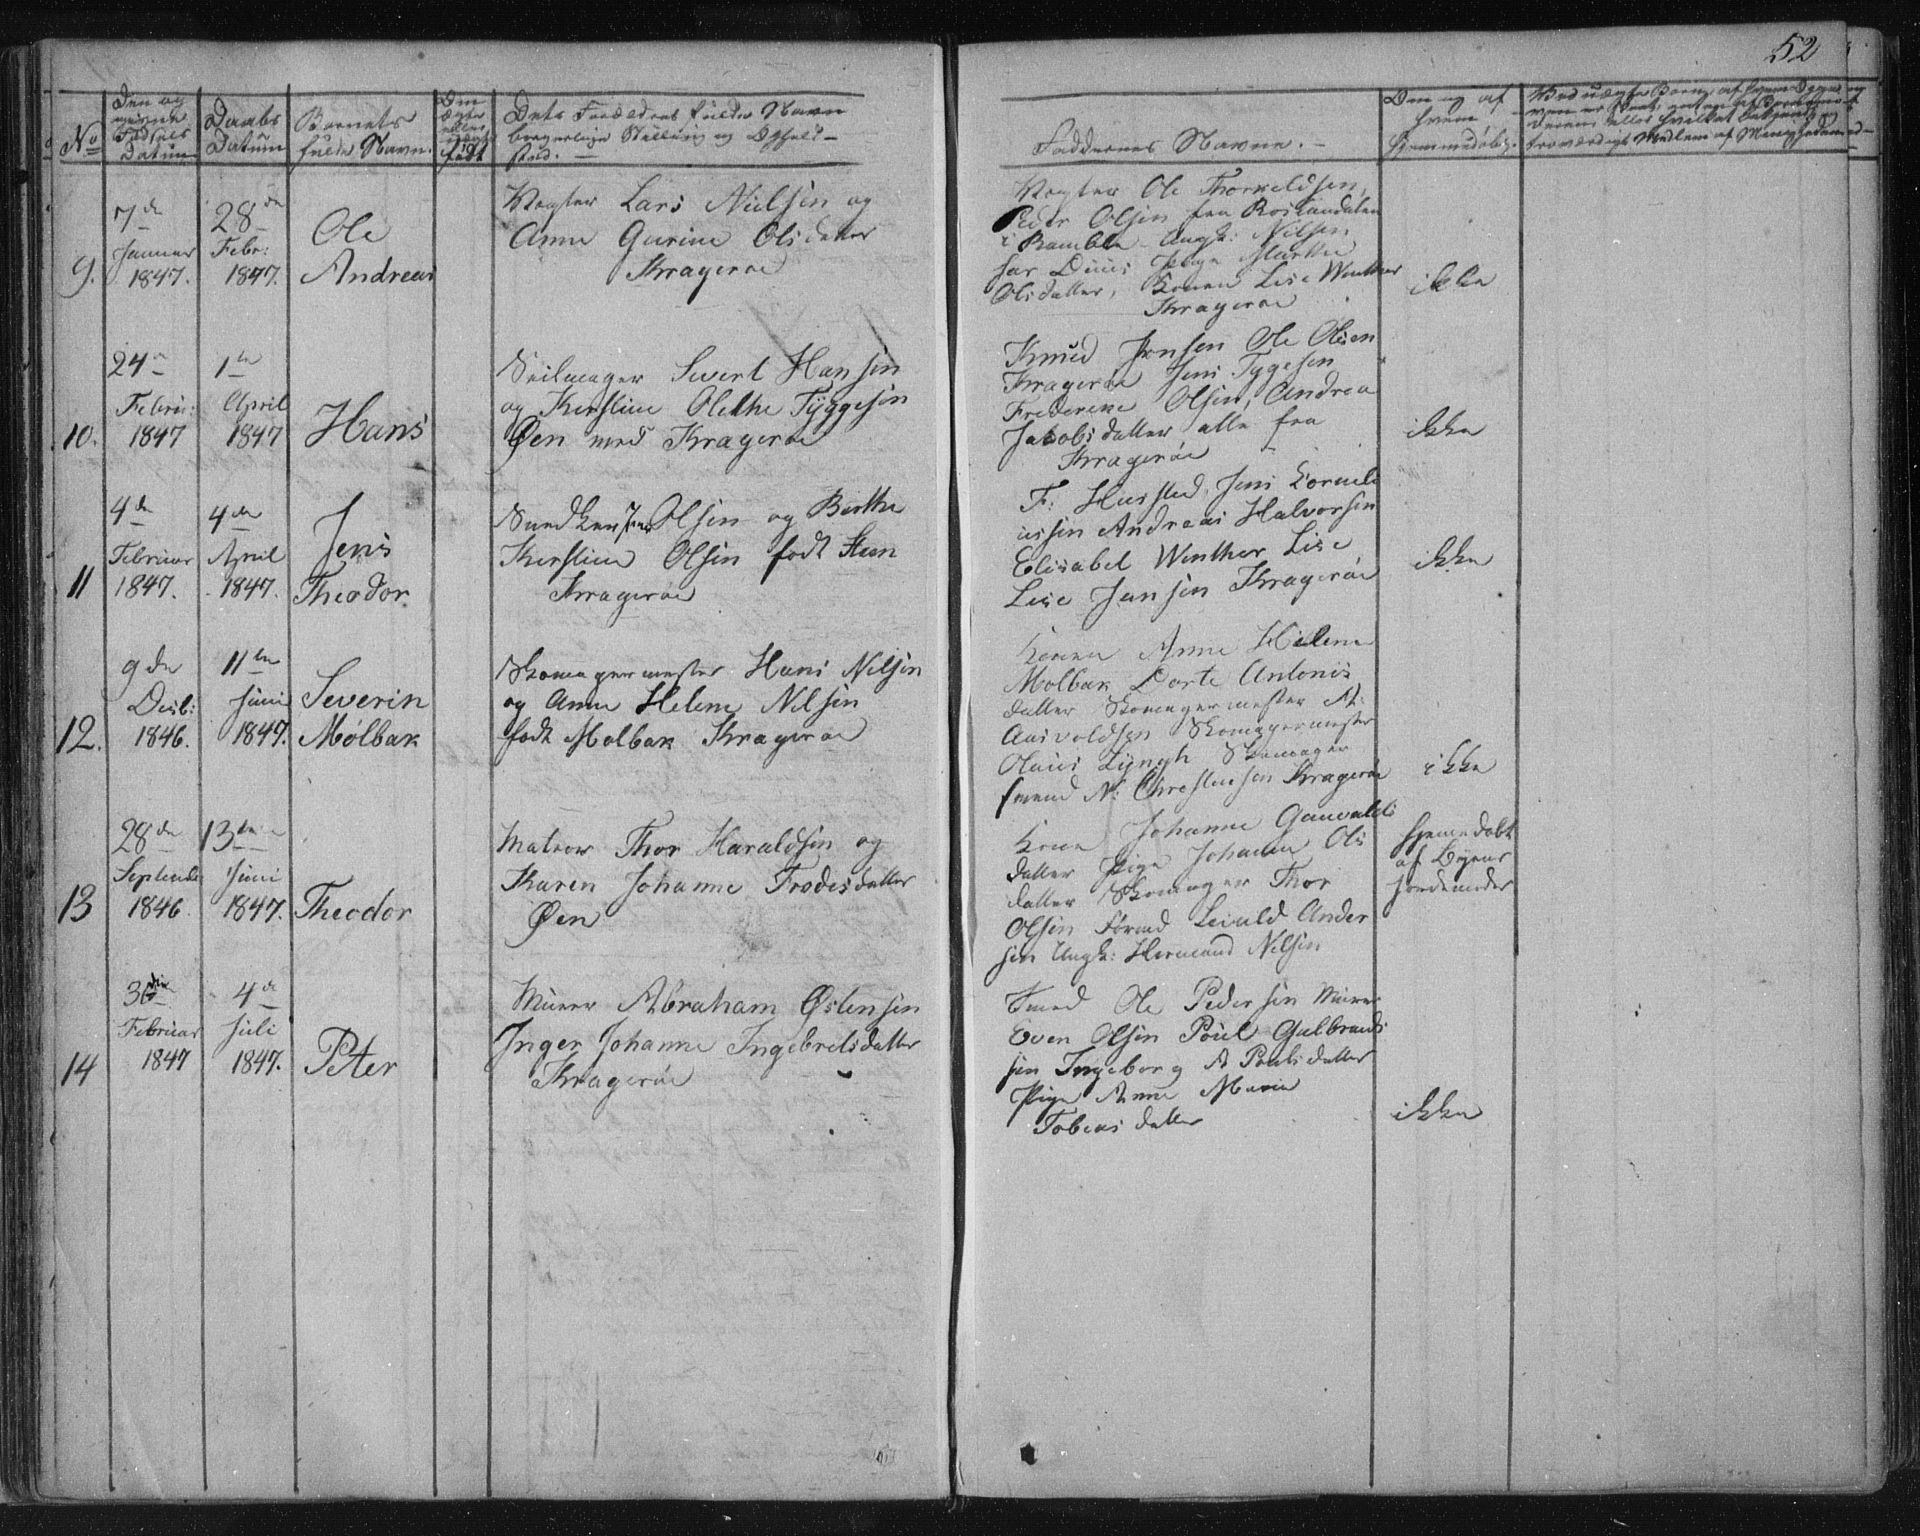 52
No
Daabs
Datum
Barnets
fulde Navn.
født
Dets Forældres fulde Navn
borgerlige Stilling og Opholds-
sted.
Faddernes Navne.
Om og af
hvem
hjemmedøbt.
9.
7de
Januar
1847.
28de
Febr:
1847.
Ole
Andreas
Lars Nielsen og
Anne Gurine Olsdatter
Kragerøe
Ole Thorkeldsen,
Peder Olsen fra
i Bamble Ungk: Nilsen
Pige Marthe
Olsdatter, Konen Lise Winther
Kragerøe
ikke
10.
24
Febru:
1847
1te
April
1847
Hans
Seilmager Sivert Hansen
og Kirstine Olethe Tyggesen
Øen med Kragerøe
Knud Jensen Ole Olsen
Kragerøe Jens Tygesen
Frederike Olsen, Andrea
Jakobsdatter alle fra
Kragerøe
ikke
11
4de
Februar
1847.
4de
April
1847.
Jens
Theodor
Snedker Olsen og Berthe
Kirstine Olsen født Steen
Kragerøe
F: Husted, Jens Corneli
ussen Andreas Halvorsen
Elisabet Winther, Lise
Lise Jensen Kragerøe
ikke
12.
9de
Decb:
1846.
11te
Juni
1847.
Severin
Mølbak
Skomagermester Hans Nilsen
og Anne Helene Nilsen
født Mølbak Kragerøe
Konen Anne Helene
Molbak Dorte Antonis
datter Skomagermester A:
Aasvoldsen Skomagermester
Olaus Lyngh Skomager
svend N: Christensen Kragerøe
ikke
13
28de
Septemb:
1846.
13de
Juni
1847.
Theodor
Matros Thor Haraldsen og
Karen Johanne Frodesdatter
Øen
Kone Johanne Gunvalds
datter Pige Johanne Ols
datter Skomager Thor
Olsen Leivald Ander
sen Ungk: Hermand Nilsen
hjemedøbt
af Byens
Jordemoder
14
Februar
1847
4de
Juli
1847.
Peter
Murer Abraham Østensen
Inger Johanne Ingebretsdatter
Kragerøe
Smed Ole Pedersen Murer
Even Olsen Poul Gulbrands
sen Ingeborg A Poulsdatter
Pige Anne Marie
Tobiasdatter
ikke